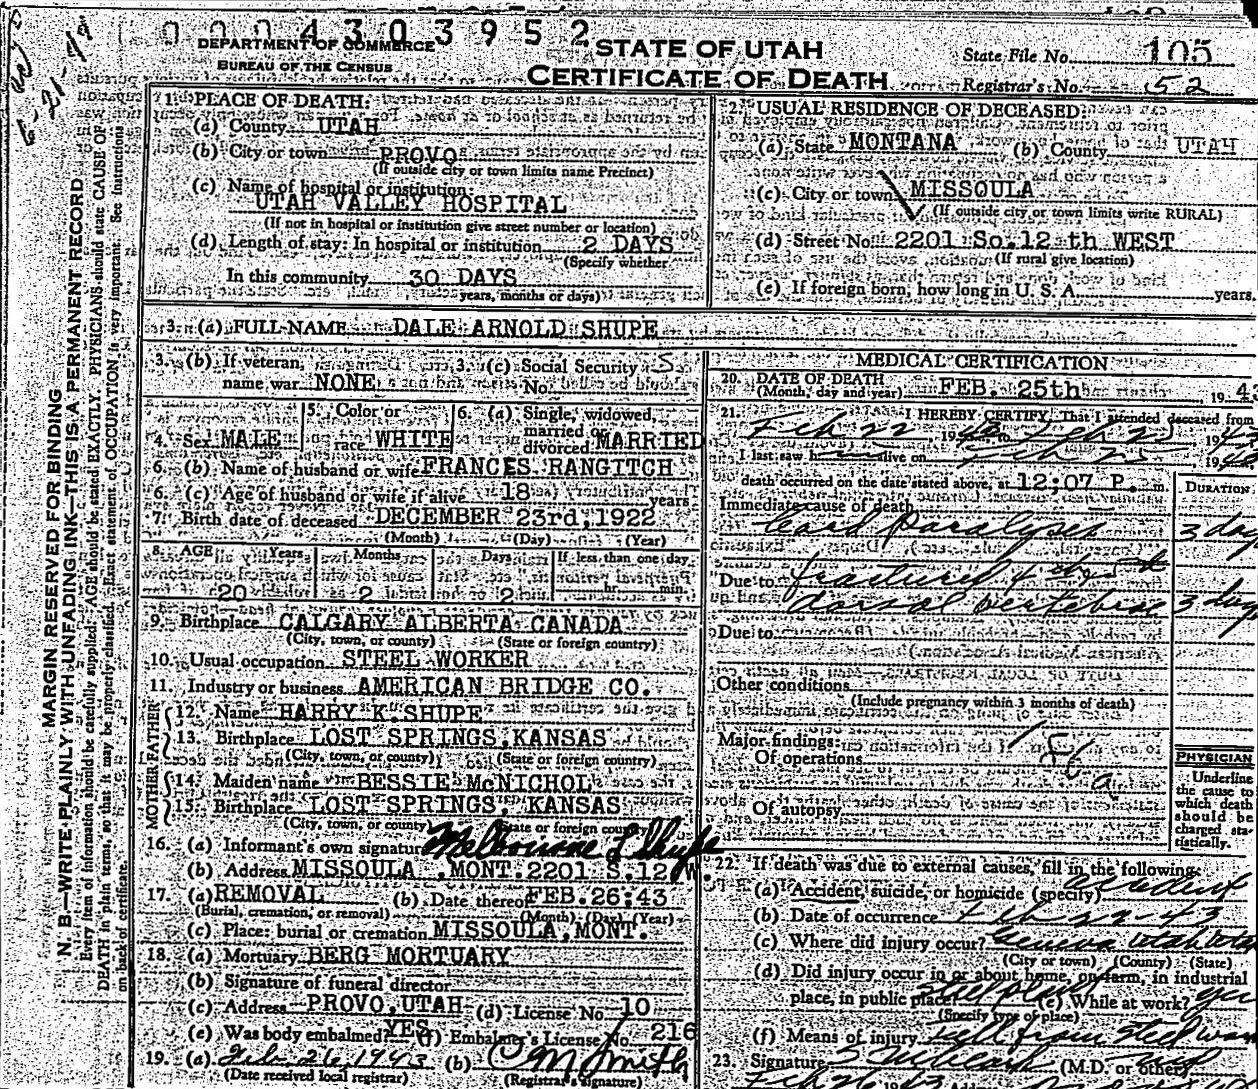 0004303952
DEPARTMENT OF COMMERCE
BUREAU OF THE CENSUS
STATE OF UTAH
CERTIFICATE OF DEATH
State File No. 105
Registrar's No. 52
MARGIN RESERVED FOR BINDING
N. B.—WRITE PLAINLY WITH UNFADING INK—THIS IS A PERMANENT RECORD
Every item of information should be carefully supplied. AGE should be stated EXACTLY. PHYSICIANS should state CAUSE OF
DEATH in plain terms, so that it may be properly classified. Exact statement of OCCUPATION is very important. See instructions
on back of certificate.
1. PLACE OF DEATH:
(a) County UTAH
(b) City or town PROVO
(If outside city or town limits name Precinct)
(c) Name of hospital or institution:
UTAH VALLEY HOSPITAL
(If not in hospital or institution give street number or location)
(d) Length of stay: In hospital or institution 2 DAYS
(Specify whether
In this community 30 DAYS
years, months or days)
2. USUAL RESIDENCE OF DECEASED:
(a) State MONTANA (b) County UTAH
(c) City or town MISSOULA
(If outside city or town limits write RURAL)
(d) Street No. 2201 So. 12 th WEST
(If rural give location)
(e) If foreign born, how long in U. S. A. years
3. (a) FULL NAME DALE ARNOLD SHUPE
3. (b) If veteran, name war NONE
3. (c) Social Security No.
4. Sex MALE
5. Color or race WHITE
6. (a) Single, widowed, married or divorced MARRIED
6. (b) Name of husband or wife FRANCES RANGITCH
6. (c) Age of husband or wife if alive 18 years
7. Birth date of deceased DECEMBER 23rd, 1922
(Month) (Day) (Year)
8. AGE Years Months Days If less than one day
20 2 2 hr. min.
9. Birthplace CALGARY ALBERTA CANADA
(City, town, or county) (State or foreign country)
10. Usual occupation STEEL WORKER
11. Industry or business AMERICAN BRIDGE CO.
FATHER
12. Name HARRY K. SHUPE
13. Birthplace LOST SPRINGS, KANSAS
(City, town, or county) (State or foreign country)
MOTHER
14. Maiden name BESSIE McNICHOL
15. Birthplace LOST SPRINGS, KANSAS
(City, town, or county) (State or foreign country)
16. (a) Informant's own signature Melbourne L Shupe
(b) Address MISSOULA, MONT. 2201 S. 12 W.
17. (a) REMOVAL (b) Date thereof FEB. 26, 43
(Burial, cremation, or removal) (Month) (Day) (Year)
(c) Place: burial or cremation MISSOULA, MONT.
18. (a) Mortuary BERG MORTUARY
(b) Signature of funeral director
(c) Address PROVO, UTAH (d) License No. 10
(e) Was body embalmed? YES (f) Embalmer's License No. 216
19. (a) Feb-26, 1943 (b) C M Smith
(Date received local registrar) (Registrar's signature)
MEDICAL CERTIFICATION
20. DATE OF DEATH
(Month, day and year) FEB. 25th 19 4
21. I HEREBY CERTIFY, That I attended deceased from
Feb 22, 1943 to Feb 25, 19
I last saw h alive on Feb 25 19
death occurred on the date stated above, at 12;07 P. m.
DURATION
Immediate cause of death
Cord Paralysis 3 day
Due to fractured 4
dorsal vertebrae 3 day
Due to
Other conditions
(Include pregnancy within 3 months of death)
Major findings:
Of operations
186 a
Of autopsy
PHYSICIAN
Underline
the cause to
which death
should be
charged sta-
tistically.
22. If death was due to external causes, fill in the following:
(a) Accident, suicide, or homicide (specify) accident
(b) Date of occurrence Feb 22-43
(c) Where did injury occur? Geneva Utah Utah
(City or town) (County) (State)
(d) Did injury occur in or about home, on farm, in industrial
place, in public place? steel plant (e) While at work? yes
(Specify type of place)
(f) Means of injury fell from steel
23. Signature (M.D. or other)
Feb 26 1943